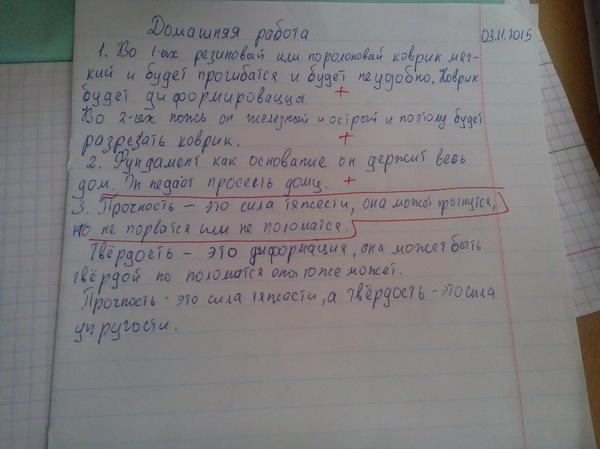 Домашняя работа
03.11.2015
1. Во 1-ых резиновый или поролоновый коврик мяг-
кий и будет прогибатся и будет неудобно. Коврик
будет диформироваццa. +
Во 2-ых ножь он железный и острый и поэтому будет
разрезать коврик. +
2. Фундамент как основание он держит весь
дом. Он недаёт просесть дому. +
3. Прочность – это сила тяжести, она может прогнутся,
но не порватся или не поломатся.
Твёрдость – это диформация, она может быть
твёрдой но поломатся она тоже может.
Прочность - это сила тяжести, а твёрдость - это сила
упругости.